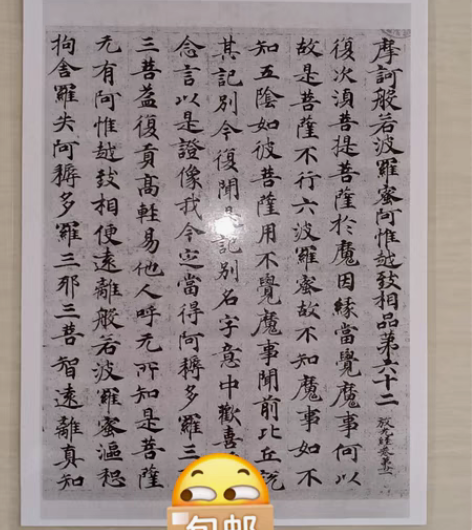 摩訶般若波羅蜜阿惟越致相品第六十二
復次須菩提菩薩於魔因緣當覺魔事何以
故是菩薩不行六波羅蜜故不知魔事如不
知五陰如彼菩薩用不覺魔事聞前比丘說
其記別今復聞記別名字意中歡喜
念言以是證像我今定當得阿耨多羅三
三菩益復貢高輕易他人呼无所知是菩薩
无有阿惟越致相便遠離般若波羅蜜漚惒
拘舍羅失阿耨多羅三耶三菩智遠離真知
包邮